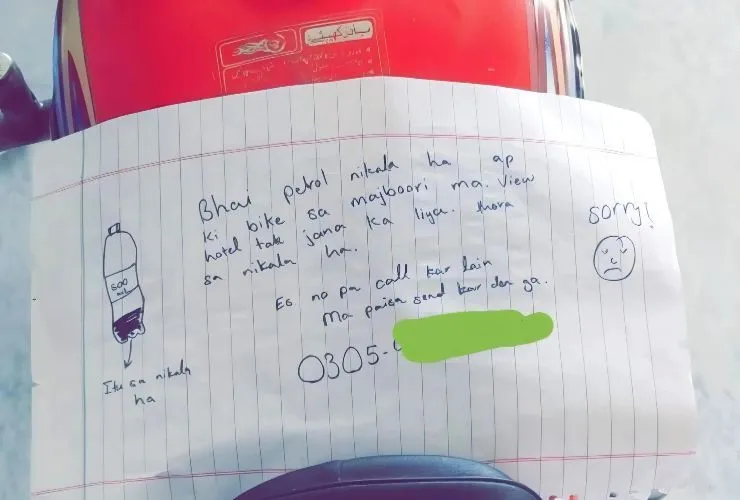 یاد رکھیئے
Bhai petrol nikala ha ap
ki bike sa majboori ma. View
hotel tak jana ka liya. thora
sa nikala ha.
Es no pa call kar lain
Ma paisa send kar don ga.
0305-
sorry!
500
ml
Itu sa nikala
ha